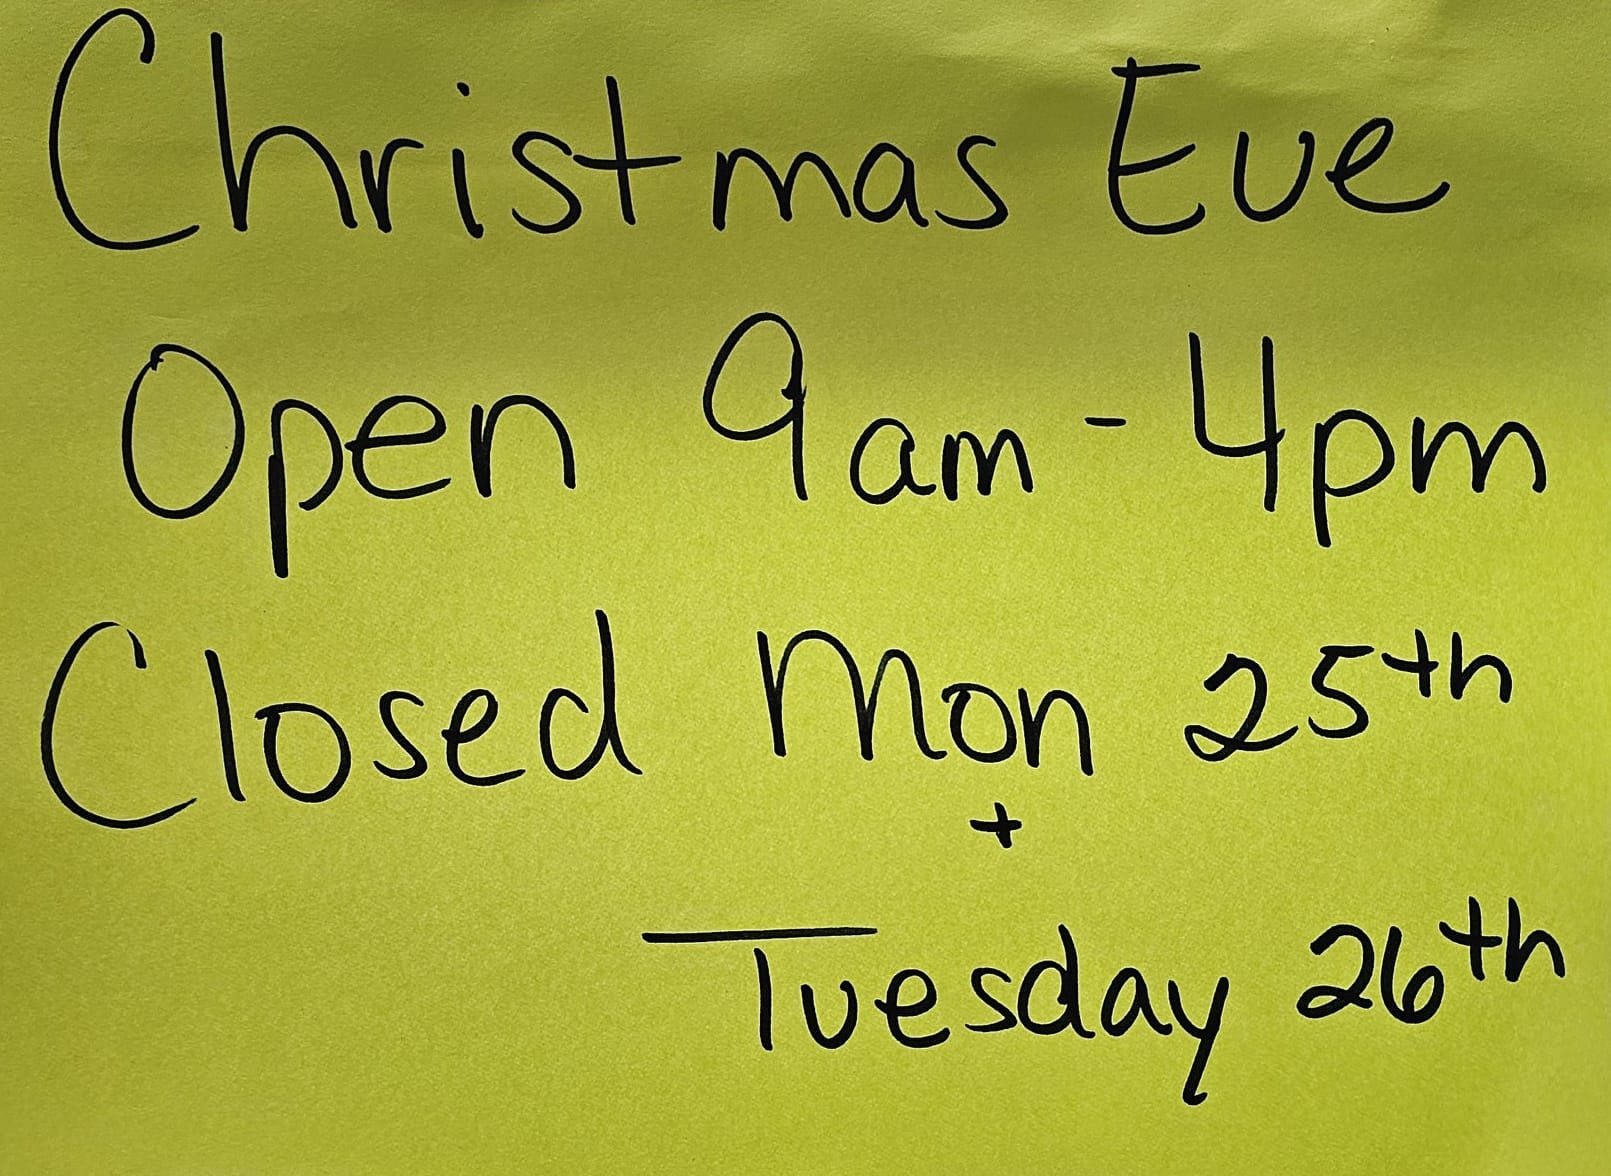 Christmas Eve
Open 9am - 4pm
Closed Mon 25th
+
Tuesday 26th